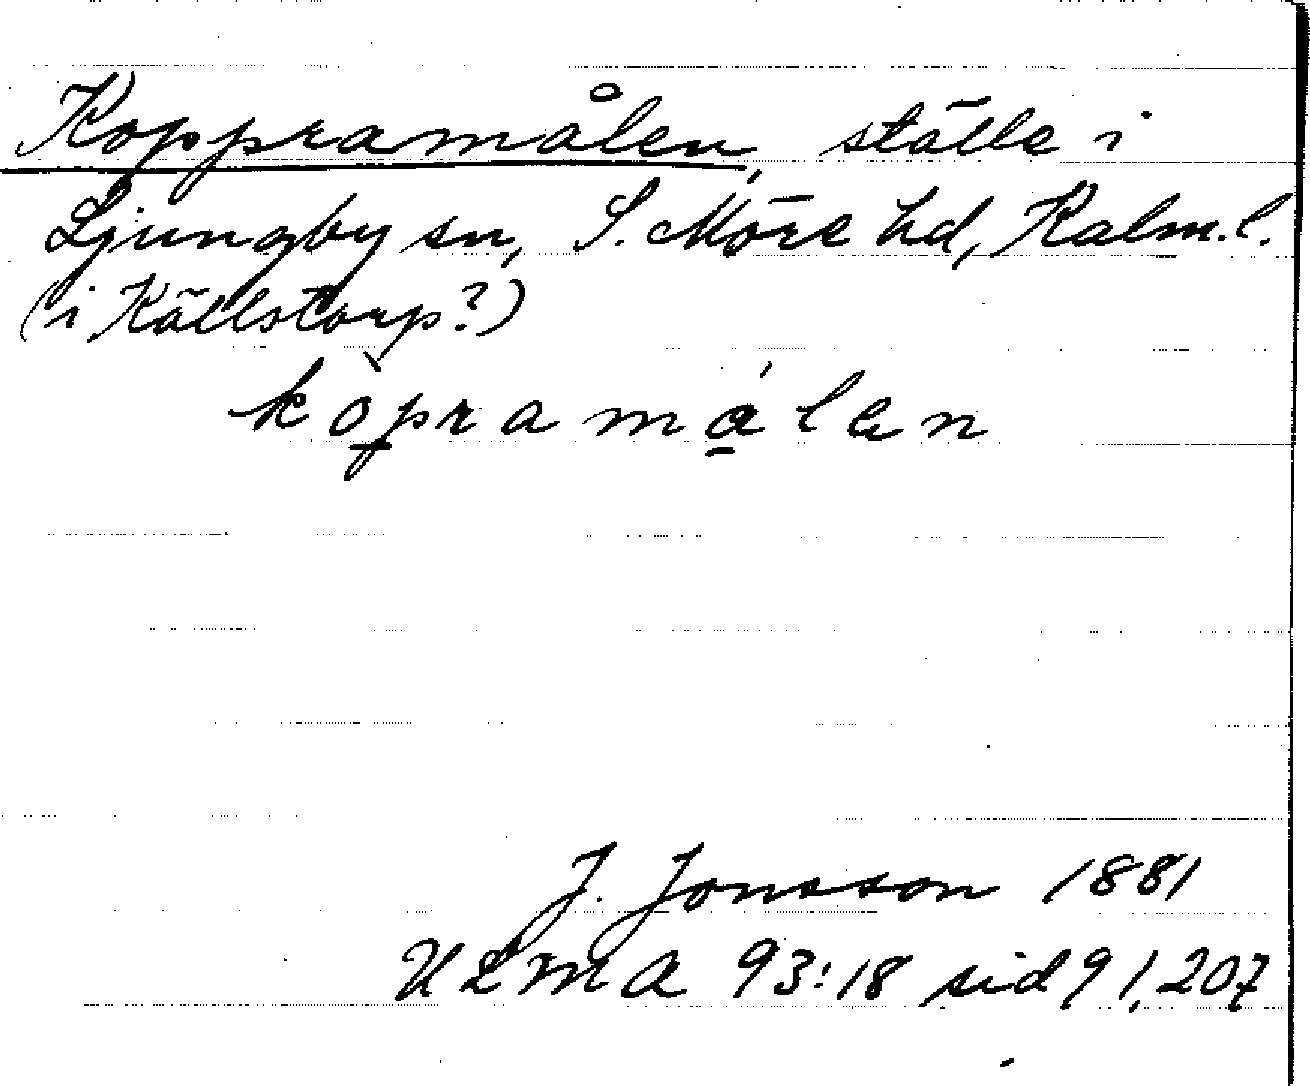 Koppramålen, ställe i
Ljungby sn, S. Möre hd, Kalm. l.
(i Källstorp?)
kòpramálen
J. Jonsson 1881
ULMA 93:18 sid 91, 207